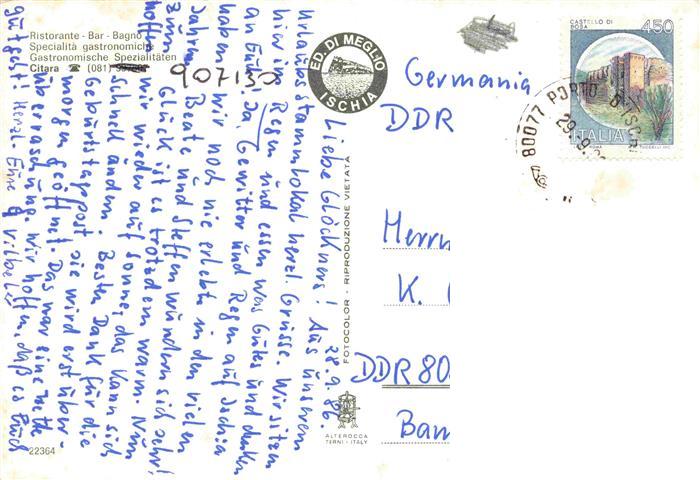 Ristorante - Bar - Bagno
Specialità gastronomiche
Gastronomische Spezialitäten
Citara ☎ (081)
907130
ED. DI MEGLIO
ISCHIA
28.9.86.
Liebe Glöckners! Aus unserem
Urlaubsstammlokal herzl. Grüsse. Wir sitzen
hier im Regen und essen was Gutes und denken
an Euch! Ja, Gewitter und Regen auf Ischia
haben wir noch nie erlebt in den vielen
Jahren. Beate und Steffen wundern sich sehr!
Zum Glück ist es trotzdem warm. Nun
hoffen wir wieder auf Sonne, das kann sich
schnell ändern. Besten Dank für die
Geburtstagspost, sie wird erst über-
morgen geöffnet. Das war eine nette
Überraschung. Wir hoffen, daß es Euch
gutgeht! Herzl. Eure 4
22364
FOTOCOLOR - RIPRODUZIONE VIETATA
ALTEROCCA
TERNI - ITALY
CASTELLO DI
ROSA
450
ITALIA
ROMA
80077 PORTO D'ISCHIA
29.9.
Germania
DDR
Herrn
K.
DDR 80